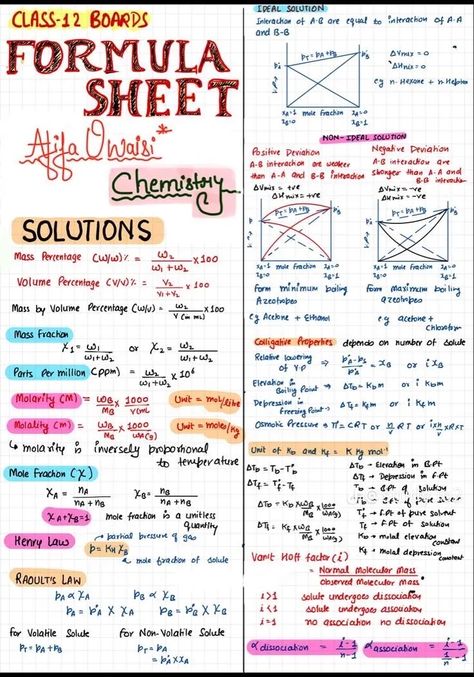 CLASS-12 BOARDS
FORMULA
SHEET
Atifa Owaisi
Chemistry
SOLUTIONS
Mass Percentage (W/w)% = ω₂/(ω₁+ω₂) × 100
Volume Percentage (V/V)% = V₂/(V₁+V₂) × 100
Mass by Volume Percentage (W/V) = ω₂/V (in mL) × 100
Mass Fraction
X₁ = ω₁/(ω₁+ω₂) or X₂ = ω₂/(ω₁+ω₂)
Parts Per million (ppm) = ω₂/(ω₁+ω₂) × 10⁶
Molarity (M) = ωB/MB × 1000/V(mL) Unit = mol/litre
Molality (M) = ωB/MB × 1000/WA(g) Unit = moles/Kg
↳ molarity is inversely proportional
to temperature
Mole Fraction (χ)
XA = nA/(nA+nB) XB = nB/(nA+nB)
XA+XB=1 mole fraction is a unitless
quantity
Henry Law partial pressure of gas
p = KH XB
mole fraction of solute
RAOULT'S LAW
pA ∝ XA pB ∝ XB
pA = p°A × XA pB = p°B × XB
for Volatile Solute for Non-Volatile Solute
PT = PA+PB PT = PA
= p°A × XA
IDEAL SOLUTION
Interaction of A-B are equal to interaction of A-A
and B-B
PT = PA+PB
p°B
ΔVmix = 0
ΔHmix = 0
eg n-Hexane + n-Heptan
XA=1 mole fraction XA=0
XB=0 XB=1
NON-IDEAL SOLUTION
Positive Deviation Negative Deviation
A-B interaction are weaker A-B interaction are
than A-A and B-B interaction stronger than A-A and
B-B interactio
ΔVmix = +ve ΔVmix = -ve
ΔHmix = +ve ΔHmix = -ve
PT = PA+PB PT = PA+PB
p°B p°B
XA=1 mole fraction XA=0 XA=1 mole fraction XA=0
XB=0 XB=1 XB=0 XB=1
form minimum boiling form maximum boiling
Azeotropes azeotropes
eg Acetone + Ethanol eg acetone +
Chloroform
Colligative Properties depends on number of solute
Relative lowering
of V.P ⇒ (p°A-pS)/p°A = XB or i XB
Elevation in
Boiling Point ⇒ ΔTb = Kb m or i Kb m
Depression in
freezing Point ⇒ ΔTf = Kf m or i Kf m
Osmotic Pressure ⇒ π = CRT or n/V RT or i×n/V × R×T
Unit of Kb and Kf = K Kg mol⁻¹
ΔTb = Tb - T°b ΔTb → Elevation in B.Pt
ΔTf = T°f - Tf ΔTf → Depression in F.Pt
Tb → B.Pt of solution
ΔTb = Kb × ωB/MB × 1000/WA(g) T°b → B.Pt of pure solven
T°f → F.Pt of pure solvent
ΔTf = Kf × ωB/MB × 1000/WA(g) Tf → F.Pt of solution
Kb → molal elevation
constant
Kf → molal depression
constant
Vanit Hoff factor (i)
= Normal molecular mass
observed molecular mass
i>1 solute undergoes dissociation
i<1 solute undergoes association
i=1 no association no dissociation
α dissociation = (i-1)/(n-1) α association = (i-1)/(1/n - 1)